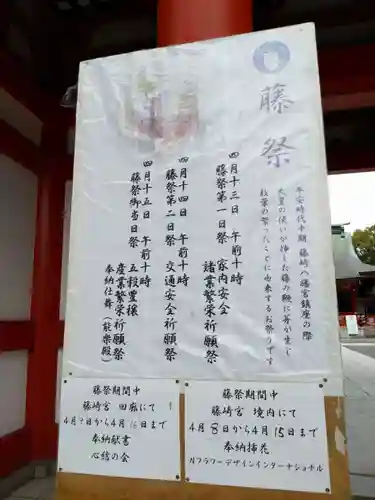 藤祭
平安時代中期 藤崎八旛宮鎮座の際
天皇の使いが挿した藤の鞭に芽が生し
枝葉の繁ったことに由来するお祭りです
四月十三日 午前十時
藤祭第一日祭 家内安全
諸業繁栄 祈願祭
四月十四日 午前十時
藤祭第二日祭 交通安全祈願祭
四月十五日 午前十時
藤祭御当日祭 五穀豊穣
産業繁栄祈願祭
奉納仕舞(能楽殿)
藤祭期間中
藤崎宮 回廊にて
4月9日から4月16日まで
奉納献書
心縁の会
藤祭期間中
藤崎宮 境内にて
4月8日から4月15日まで
奉納挿花
カフラワーデザインインターナショナル